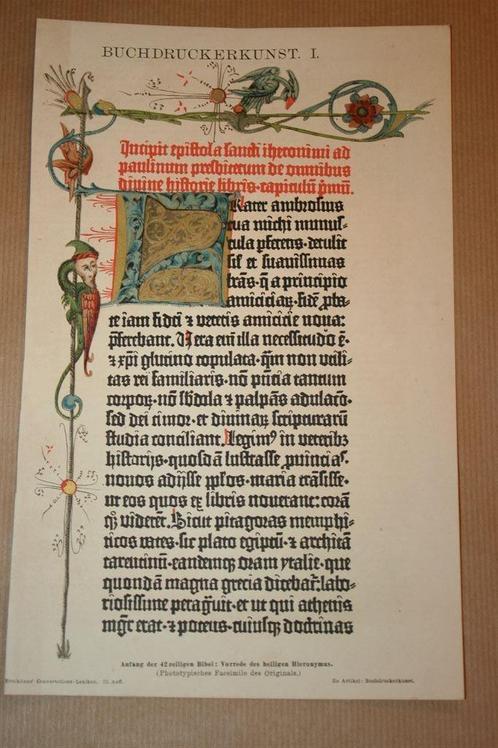 BUCHDRUCKERKUNST. I.
Incipit epistola sancti iheronimi ad
paulinum presbiterum de omnibus
divine historie libris·capitulū p̄mū.
Frater ambrosius
tua michi munus-
cula pferens·detulit
sil' et suavissimas
lr̄as·q̄ a principio
amiciciaꝝ·fidē pba-
te iam fidei ⁊ veteris amicicie nova:
pferebant. Vera eni illa necessitudo ē·
⁊ xp̄i glutino copulata·qm̄ non utili-
tas rei familiaris·nō pn̄cia tantum
corpoꝝ·nō sb̄dola ⁊ palpās adulacō·
sed dei timor·et divinaꝝ scripturarū
studia conciliant. Legimꝰ in veteribꝫ
historijs·quosdā lustrasse ꝓvincias·
novos adijsse pp̄los·maria trāsisse·
ut eos quos ex libris noverant: corā
qꝫ viderēt. Sicut pitagoras memphi-
ticos vates·sic plato egiptū·⁊ architā
tarentinū·eandemqꝫ oram ytalie·que
quondā magna grecia dicebat̄: labo-
riosissime peragvit·et ut qui athenis
mgr̄ erat·⁊ potens·cuiusqꝫ doctrinas
Anfang der 42zeiligen Bibel: Vorrede des heiligen Hieronymus.
(Phototypisches Facsimile des Originals.)
Brockhaus' Conversations-Lexikon. 13. Aufl.
Zu Artikel: Buchdruckerkunst.